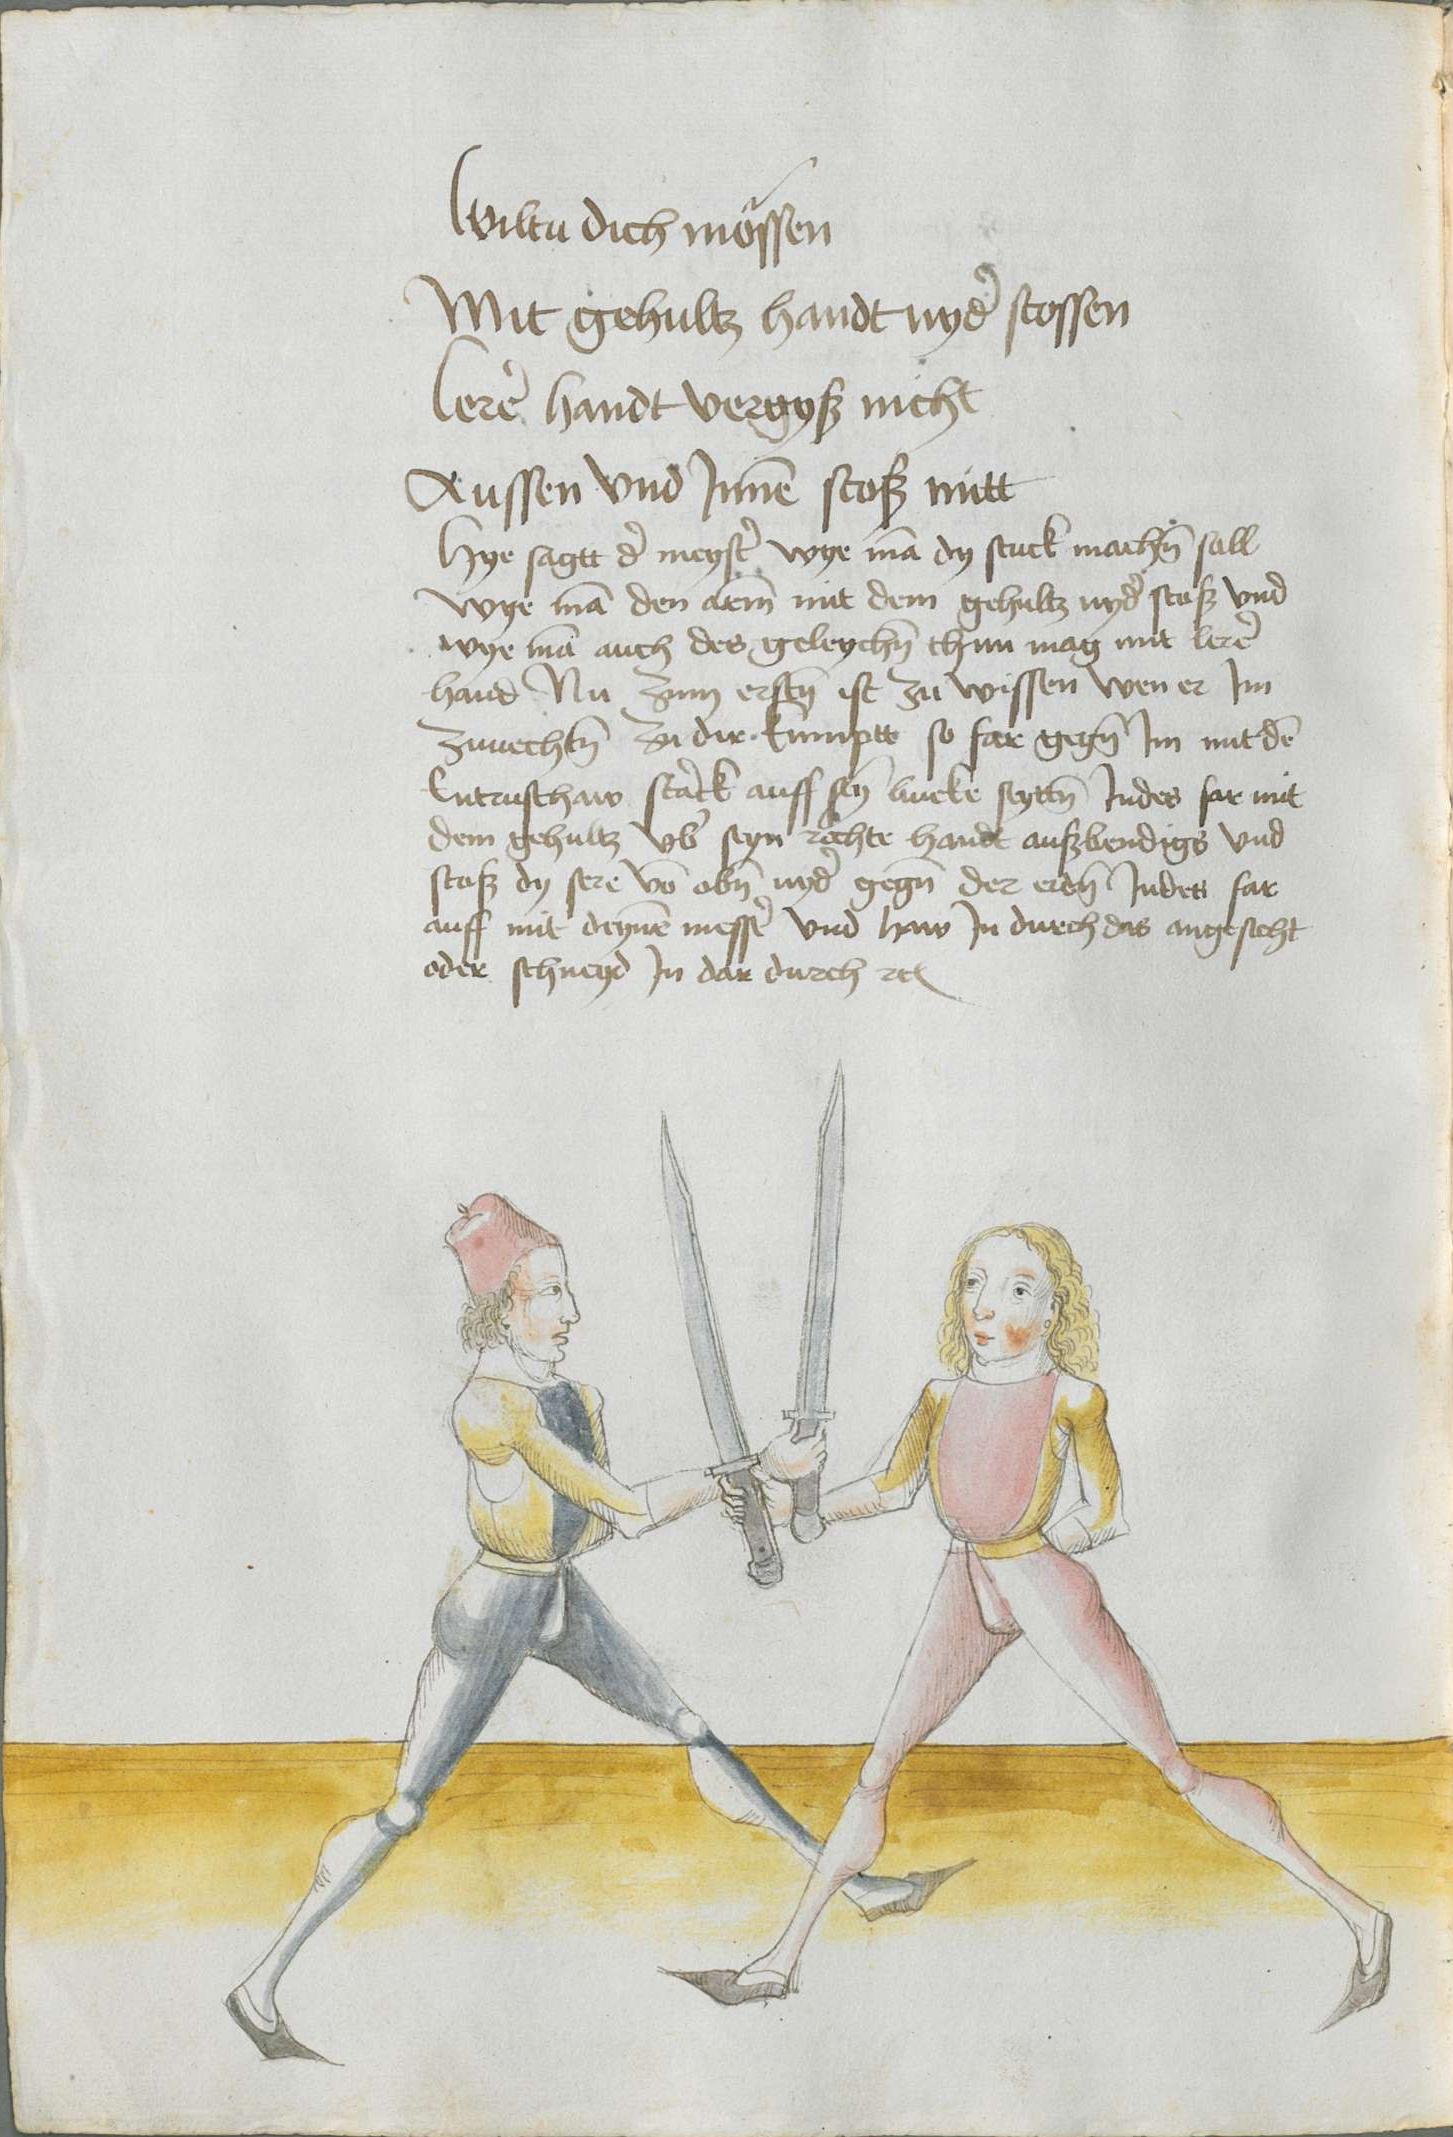 Wiltu dich mössen
Mit gehultz handt nyd᷑ stossen
lere᷑ handt vergyß nicht
Aussen vnd Jnne̅ stoß mitt
Hye sagtt d᷑ meyst᷑ wye ma̅ dy stuck mach̅n sall
wye ma̅ den arm̅ mit dem gehultz nyd᷑ stoß vnd
wye ma̅ auch des geleych̅n thun mag mit lere᷑
hand Nu zum erst̅n ist zu wissen wen er Jm
zuuecht̅n zu dir kumptt so far geg̅n Jm mit de̅
Entrusthaw starck auff sey̅ lincke seytt̅n Jndes far mit
dem gehultz vb᷑ seyn rechte handt außbendigs vnd
stoß dy sere vo̅ ob̅n nyd᷑ geg̅n der erd̅n Jndes far
auff mit deyne̅ mess᷑ vnd haw Jn durch das angesicht
oder schneyd Jn dar durch ꝛc